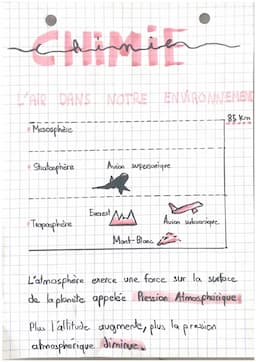 CHIMIE
Chimie
L'AIR DANS NOTRE ENVIRONNEMENT
85 Km
Mésosphère
Stratosphère
Avion supersonique
Everest
Troposphère
Avion subsonique
Mont-Blanc
L'atmosphère exerce une force sur la surface
de la planète appelée Pression Atmosphérique.
Plus l'altitude augmente, plus la pression
atmosphérique diminue.